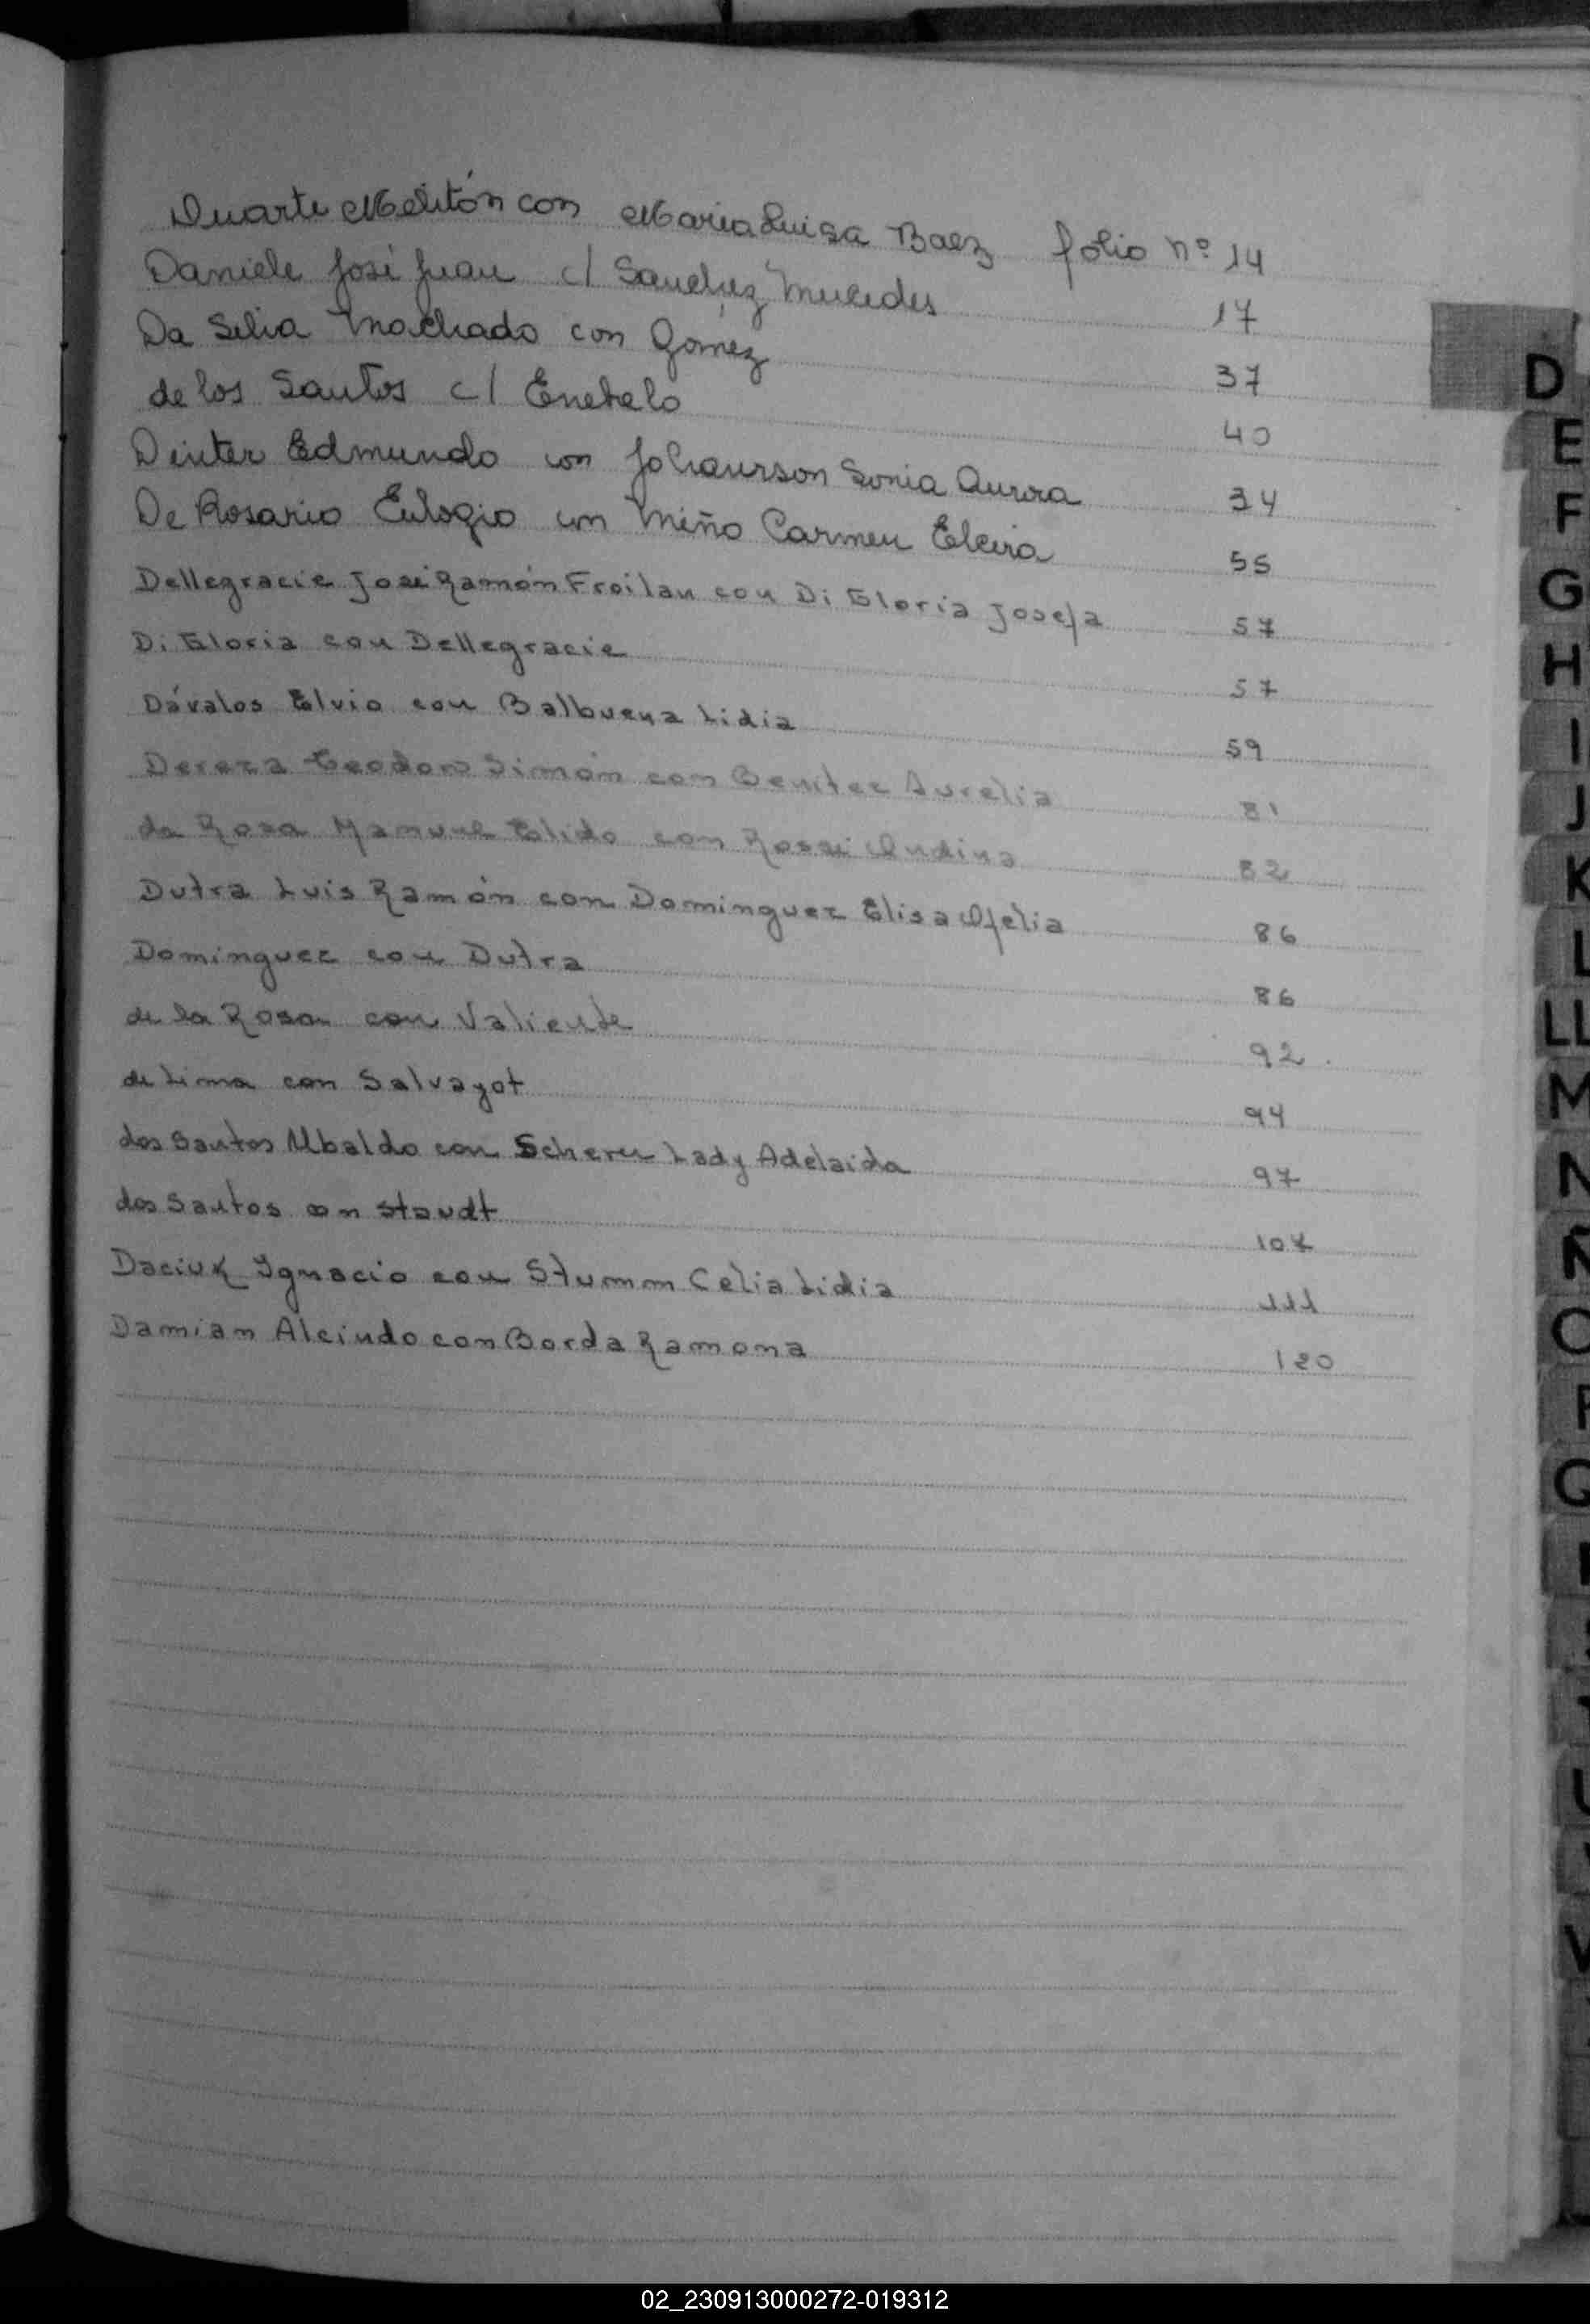 Duarte Melitón con Maria Luisa Baez folio nº 14
Daniele José Juan c/ Sanchez Mercedes 17
Da Silva Machado con Gomez 37
de los Santos c/ 40
Edmundo con Sonia Aurora 34
De Rosario Eulogio con Miño Carmen Elvira 55
Dellegracie José Ramón Froilan con Di Gloria Josefa 57
Di Gloria con Dellegracie 57
Dávalos Elvio con Balbuena Lidia 59
Dereza Teodoro Simón con Benitez Aurelia 81
da Rosa Manuel Elido con 82
Dutra Luis Ramón con Dominguez Elisa Ofelia 86
Dominguez con Dutra 86
de la Rosa con Valiente 92
de Lima con Salvayot 94
dos Santos Ubaldo con Scherer Lady Adelaida 97
dos Santos con Staudt
Daciuk Ignacio con Stumm Celia Lidia 111
Damian Alcindo con Borda Ramona 120
D
E
F
G
H
I
J
K
L
LL
M
N
Ñ
O
P
Q
V
02_230913000272-019312